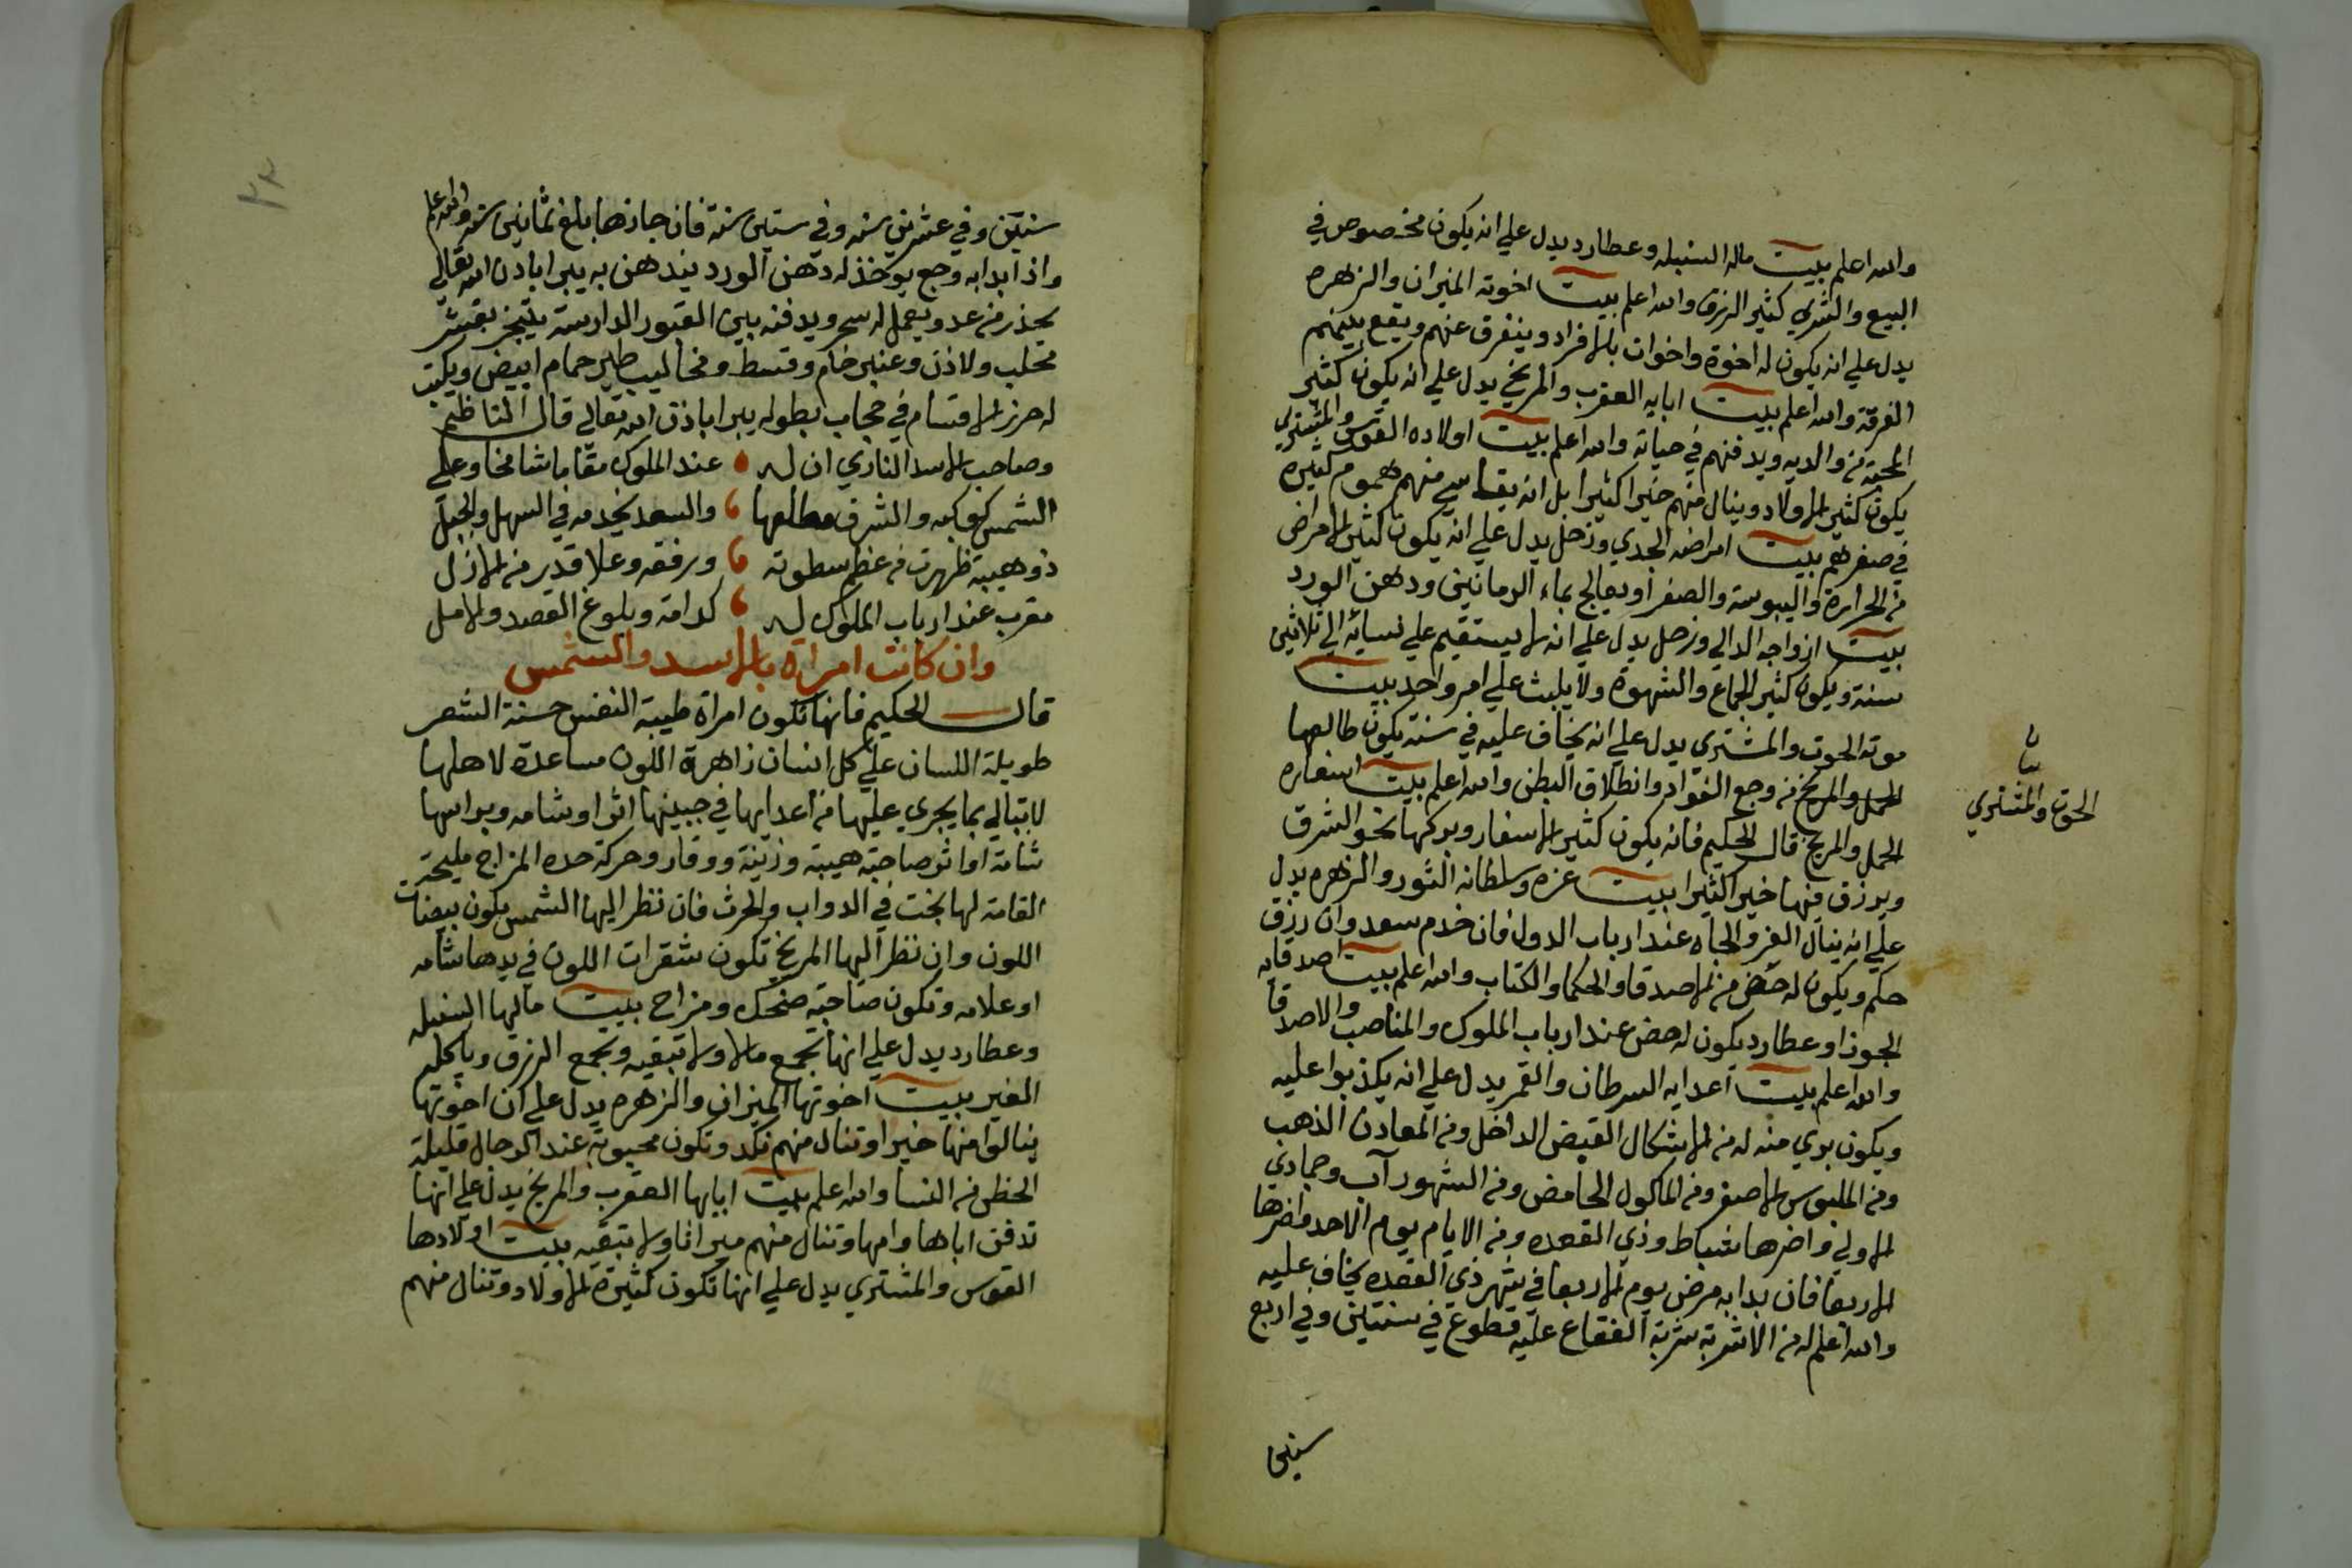 والله اعلم بيت ماله السنبله وعطارد يدل علي انه يكون مخصوص في
البيع والشري كثير الرزق والله اعلم بيت اخوته الميزان والزهره
يدل علي انه يكون له اخوة واخوات بالافراد ويتفرق عنهم ويقع بينهم
الفرقة والله اعلم بيت ابايه العقرب والمريخ يدل علي انه يكون كثير
المحبة من والديه ويدفنهم في حياته والله اعلم بيت اولاده القوس والمشتري
يكون كثير الاولاد وينال منهم خيرا كثيرا بل انه يقاسي منهم هموم كثيرة
في صغرهم بيت امراضه الجدي وزحل يدل علي انه يكون كثير الامراض
من الحرارة واليبوسة والصفرا ويعالج بماء الرمانين ودهن الورد
بيت ازواجه الدالي وزحل يدل علي انه لا يستقيم علي نسائه الي ثلاثين
سنة ويكون كثير الجماع والشهوة ولا يلبث علي امر واحد بيت
موته الحوت والمشتري يدل علي انه يخاف عليه في سنة يكون طالعها
الحمل والمريخ من وجع الفواد وانطلاق البطن والله اعلم بيت اسفاره
الحمل والمريخ قال الحكيم فانه يكون كثير الاسفار وبركها نحو الشرق
ويرزق فيها خيرا كثيرا بيت عزه وسلطانه الثور والزهره يدل
علي انه ينال العز والجاه عند ارباب الدول فان خدم سعد وان رزق
حكم ويكون له حض من الاصدقا والحكما والكتاب والله اعلم بيت اصدقايه
الجوزا وعطارد يكون له حض عند ارباب الملوك والمناصب والاصدقا
والله اعلم بيت اعدايه السرطان والقمر يدل علي انه يكذبوا عليه
ويكون بري منه له من الاشكال القبض الداخل ومن المعادن الذهب
ومن الملبوس الاصفر ومن الماكول الحامض ومن الشهور آب وجمادي
الاولي واضرها شباط وذي القعده ومن الايام يوم الاحد واضرها
الاربعا فان بدا به مرض يوم الاربعا في شهر ذي القعده يخاف عليه
والله اعلم له من الاشربة شربة الفقاع عليه قطوع في سنتين وفي اربع
سنين
الحوت والمشتري
سنين وفي عشرين سنه وفي ستين سنة فان جازها بلغ ثمانين سنه والله اعلم
واذا بدا به وجع يوخذ له دهن الورد يندهن به يبرا باذن الله تعالي
يحذر من عدو يعمل له سحر ويدفنه بين القبور الدارسة يتبخر بقشر
محلب ولاذن وعنبر خام وقسط ومخاليب طير حمام ابيض ويكتب
له حرز الاقسام في حجاب بطوله يبرا باذن الله تعالي قال الناظم
وصاحب الاسد الناري ان له عند الملوك مقاما شامخا وعلي
الشمس كوكبه والشرق مطالعها والسعد يخدمه في السهل والجبل
ذو هيبة ظهرت من عظم سطوته ورفقه وعلا قدير من الازل
مقرب عند ارباب الملوك له كرامة وبلوغ القصد والامل
وان كانت امراة بالاسد والشمس
قال الحكيم فانها تكون امراة طيبة النفس حسنة الشعر
طويلة اللسان علي كل انسان زاهرة اللون مساعدة لاهلها
لا تبالي بما يجري عليها من اعدايها في جبينها اثر او شامه وبراسها
شامة او اثر صاحبة هيبة وزينة ووقار وحركة حده المزاج مليحة
القامة لها بخت في الدواب والحرث فان نظر اليها الشمس يكون بيضات
اللون وان نظر اليها المريخ تكون شقرات اللون في يدها شامه
او علامه وتكون صاحبة ضحك ومزاح بيت مالها السنبله
وعطارد يدل علي انها تجمع مالا ولا تبقيه وتجمع الرزق وياكله
الغير بيت اخوتها الميزان والزهره يدل علي ان اخوتها
ينالوا منها خيرا وتنال منهم نكد وتكون محبوبة عند الرجال قليلة
الحظ من النسا والله اعلم بيت ابايها العقرب والمريخ يدل علي انها
تدفن اباها وامها وتنال منهم ميراثا ولا تبقيه بيت اولادها
القوس والمشتري يدل علي انها تكون كثيرة الاولاد وتنال منهم